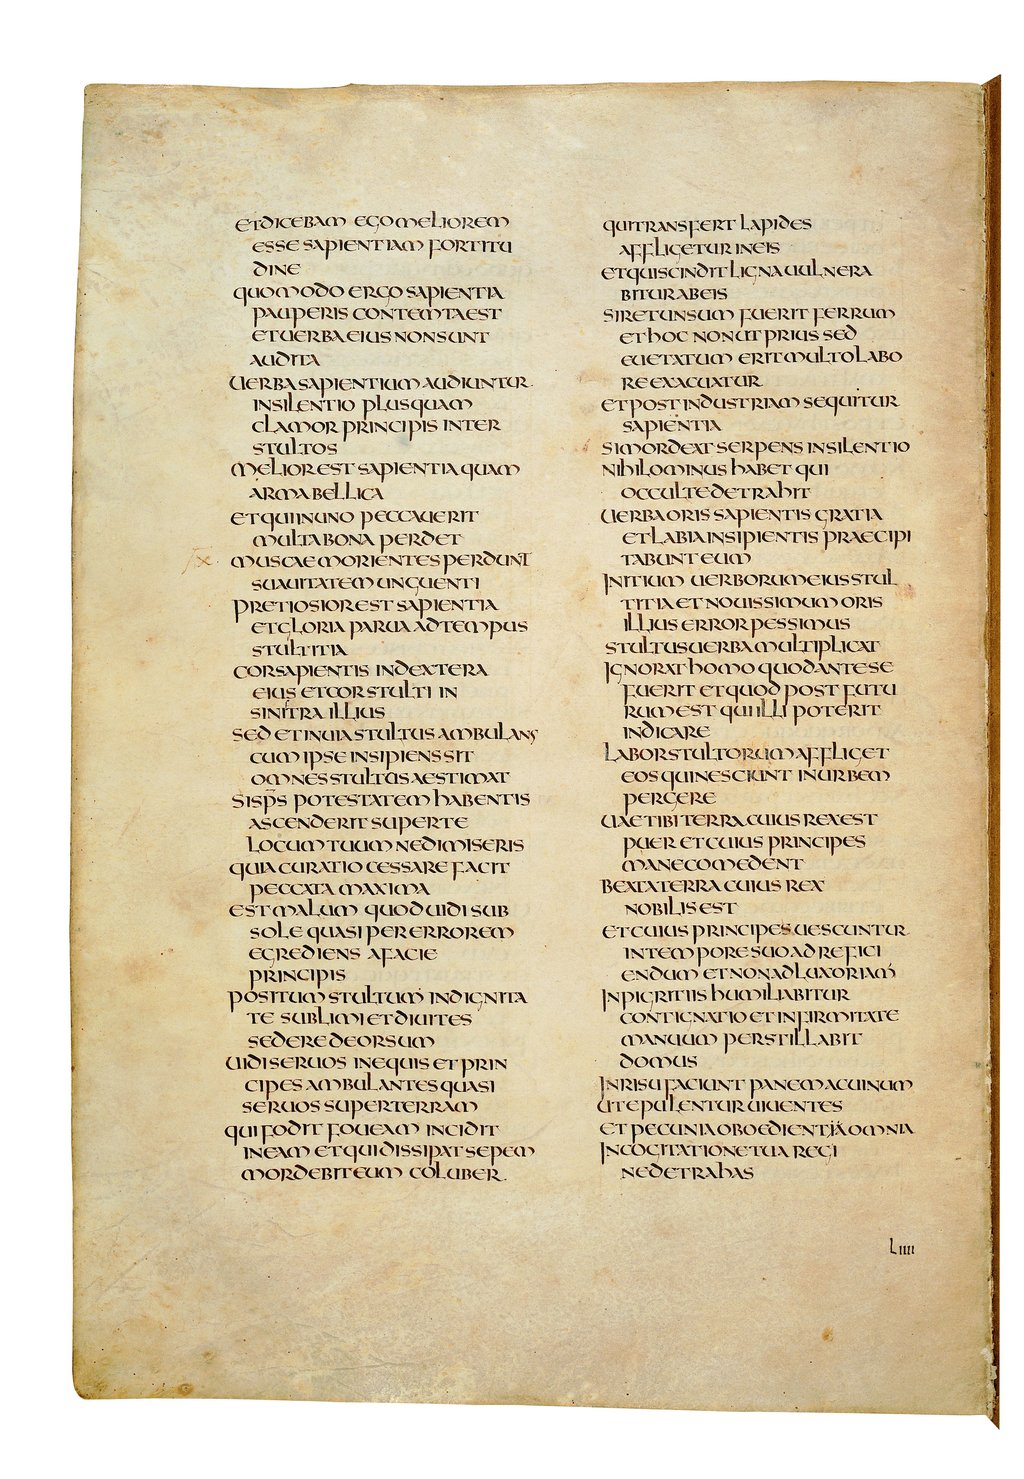 ETDICEBAM EGO MELIOREM
ESSE SAPIENTIAM FORTITU
DINE
QUOMODO ERGO SAPIENTIA
PAUPERIS CONTEMTA EST
ET UERBA EIUS NON SUNT
AUDITA
UERBA SAPIENTIUM AUDIUNTUR
IN SILENTIO PLUS QUAM
CLAMOR PRINCIPIS INTER
STULTOS
MELIOR EST SAPIENTIA QUAM
ARMA BELLICA
ET QUI IN UNO PECCAUERIT
MULTA BONA PERDET
X MUSCAE MORIENTES PERDUNT
SUAUITATEM UNGUENTI
PRETIOSIOR EST SAPIENTIA
ET GLORIA PARUA AD TEMPUS
STULTITIA
COR SAPIENTIS IN DEXTERA
EIUS ET COR STULTI IN
SINITRA ILLIUS
SED ET IN UIA STULTUS AMBULANS
CUM IPSE INSIPIENS SIT
OMNES STULTUS AESTIMAT
SI SPS POTESTATEM HABENTIS
ASCENDERIT SUPER TE
LOCUM TUUM NE DIMISERIS
QUIA CURATIO CESSARE FACIT
PECCATA MAXIMA
EST MALUM QUOD UIDI SUB
SOLE QUASI PER ERROREM
EGREDIENS A FACIE
PRINCIPIS
POSITUM STULTUM IN DIGNITA
TE SUBLIMI ET DIUITES
SEDERE DEORSUM
UIDI SERUOS IN EQUIS ET PRIN
CIPES AMBULANTES QUASI
SERUOS SUPER TERRAM
QUI FODIT FOUEAM INCIDIT
IN EAM ET QUI DISSIPAT SEPEM
MORDEBIT EUM COLUBER
QUI TRANSFERT LAPIDES
AFFLIGETUR IN EIS
ET QUI SCINDIT LIGNA UULNERA
BITUR AB EIS
SI RETUNSUM FUERIT FERRUM
ET HOC NON UT PRIUS SED
EUETATUM ERIT MULTO LABO
RE EXACUATUR
ET POST INDUSTRIAM SEQUITUR
SAPIENTIA
SI MORDEAT SERPENS IN SILENTIO
NIHIL OMINUS HABET QUI
OCCULTE DETRAHIT
UERBA ORIS SAPIENTIS GRATIA
ET LABIA INSIPIENTIS PRAECIPI
TABUNT EUM
INITIUM UERBORUM EIUS STUL
TITIA ET NOUISSIMUM ORIS
ILLIUS ERROR PESSIMUS
STULTUS UERBA MULTIPLICAT
IGNORAT HOMO QUOD ANTE SE
FUERIT ET QUOD POST FUTU
RUM EST QUI ILLI POTERIT
INDICARE
LABOR STULTORUM AFFLIGET
EOS QUI NESCIUNT IN URBEM
PERGERE
UAE TIBI TERRA CUIUS REX EST
PUER ET CUIUS PRINCIPES
MANE COMEDENT
BEATA TERRA CUIUS REX
NOBILIS EST
ET CUIUS PRINCIPES UESCUNTUR
IN TEMPORE SUO AD REFICI
ENDUM ET NON AD LUXORIAM
IN PIGRITIIS HUMILIABITUR
CONTIGNATIO ET IN FIRMITATE
MANUUM PERSTILLABIT
DOMUS
IN RISU FACIUNT PANEM AC UINUM
UT EPULENTUR UIUENTES
ET PECUNIA OBOEDIENT IA OMNIA
IN COGITATIONE TUA REGI
NE DETRAHAS
LIIII